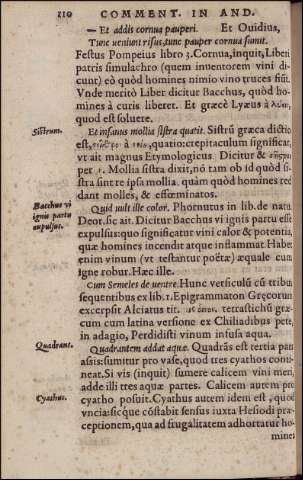 210 COMMENT. IN AND.
— Et addis cornua pauperi. Et Ouidius,
Tunc ueniunt risus, tunc pauper cornua sumit.
Festus Pompeius libro 3. Cornua, inquit, Liberi
patris simulachro (quem inuentorem vini di-
cunt) eò quòd homines nimio vino truces fiūt.
Vnde meritò Liber dicitur Bacchus, quòd ho-
mines à curis liberet. Et græcè Lyæus à λύω,
quod est soluere.
Sistrum.
Et insanus mollia sistra quatit. Sistrū græca dictio
est, σεῖστρο à σείω, quatio: crepitaculum significat,
vt ait magnus Etymologicus Dicitur &
per ι. Mollia sistra dixit, nō tam ob id quòd si-
stra sint re ipsa mollia. quàm quòd homines red
dant molles, & effœminatos.
Bacchus vi
ignis partu
expulsus.
Quid uult ille color. Phornutus in lib. de natu.
Deor. sic ait. Dicitur Bacchus vi ignis partu esse
expulsus: quo significatur vini calor & potentia,
quæ homines incendit atque inflammat. Habet
enim vinum (vt testantur poëtæ) æquale cum
igne robur. Hæc ille.
Cum Semeles de uentre. Hunc versiculū cū tribus
sequentibus ex lib. 1. Epigrammaton Græcorum
excerpsit Alciatus tit. εἰς οἶνον. tetrastichū græ-
cum cum latina versione ex Chiliadibus pete,
in adagio, Perdidisti vinum infusa aqua.
Quadrant.
Quadrantem addat aquæ. Quadrās est tertia pars
assis: sumitur pro vase, quod tres cyathos conti-
neat. Si vis (inquit) sumere calicem vini meri,
adde illi tres aquæ partes. Calicem autem pro
Cyathus.
cyatho posuit. Cyathus autem idem est, quod
vncia: sicque cōstabit sensus iuxta Hesiodi præ-
ceptionem, qua ad frugalitatem adhortatur ho-
mines